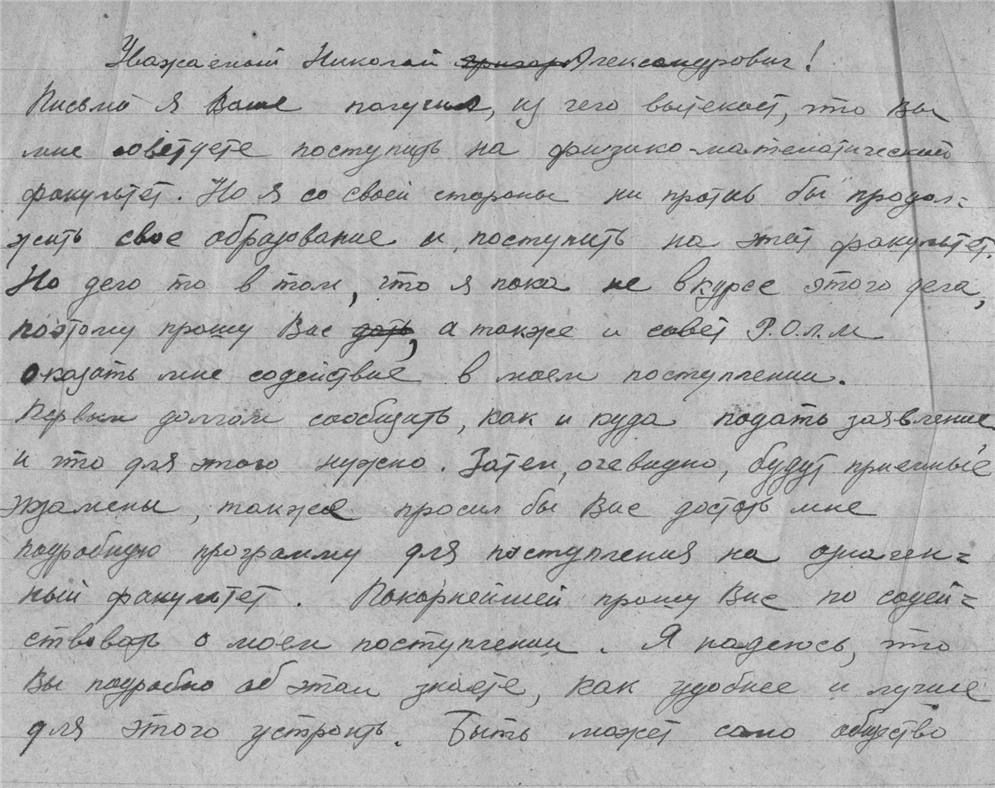 Уважаемый Николай Александрович!
Письмо я Ваше получил, из чего вытекает, что Вы
мне советуете поступить на физико-математический
факультет. Но я со своей стороны ни против бы продол=
жить свое образование и поступить на этот факультет.
Но дело то в том, что я пока не в курсе этого дела,
поэтому прошу Вас дать, а также и совет Р.О.Л.М
оказать мне содействие в моем поступлении.
Первым долгом сообщить, как и куда подать заявление,
и что для этого нужно. Затем, очевидно, будут приемные
экзамены, также просил бы Вас достать мне
подробную программу для поступления на означен=
ный факультет. Покорнейшей прошу Вас по содей=
ствовать о моем поступлении. Я надеюсь, что
Вы подробно об этом знаете, как удобнее и лучше
для этого устроить. Быть может само общество